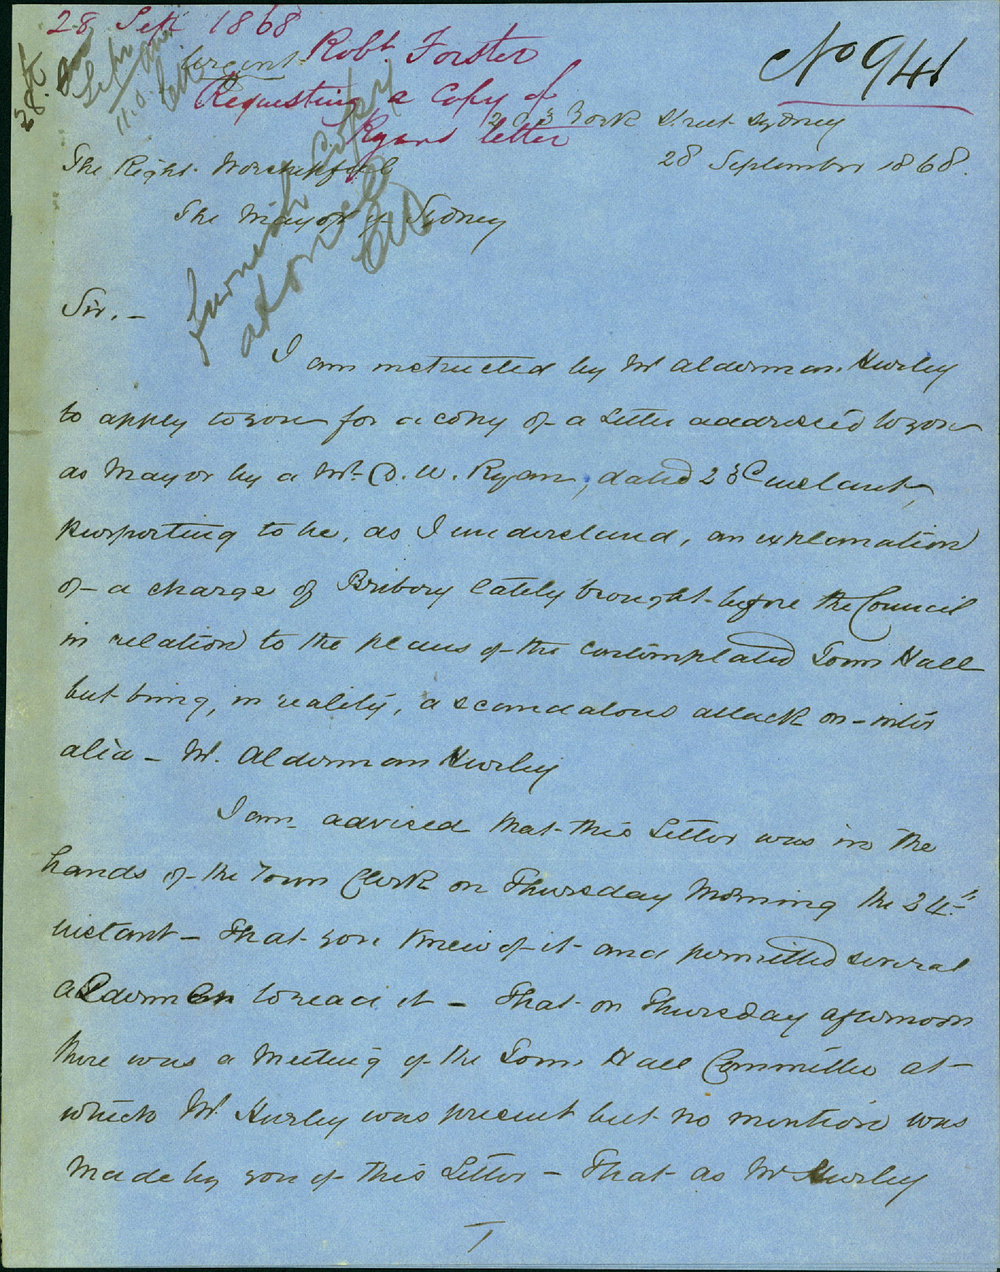 28 Sept 1868
Robt Forster
Requesting a Copy of
Ryans letter
No 941
Urgent
Furnish copy
at once
203 York Street Sydney
28 September 1868.
The Right Worshipful
The Mayor of Sydney
Sir. –
I am instructed by Mr Alderman Hurley
to apply to you for a copy of a Letter addressed to you
as Mayor by a Mr D. W. Ryan, dated 23d instant,
purporting to be, as I understand, an explanation
of a charge of Bribery lately brought before the Council
in relation to the plans of the contemplated Town Hall
but being, in reality, a scandalous attack on – inter
alia – Mr. Alderman Hurley
I am advised that this Letter was in the
hands of the Town Clerk on Thursday Morning the 24th
instant – That you knew of it and permitted several
Aldermen to read it – That on Thursday afternoon
there was a Meeting of the Town Hall Committee at
which Mr Hurley was present but no mention was
made by you of this Letter – That as Mr Hurley